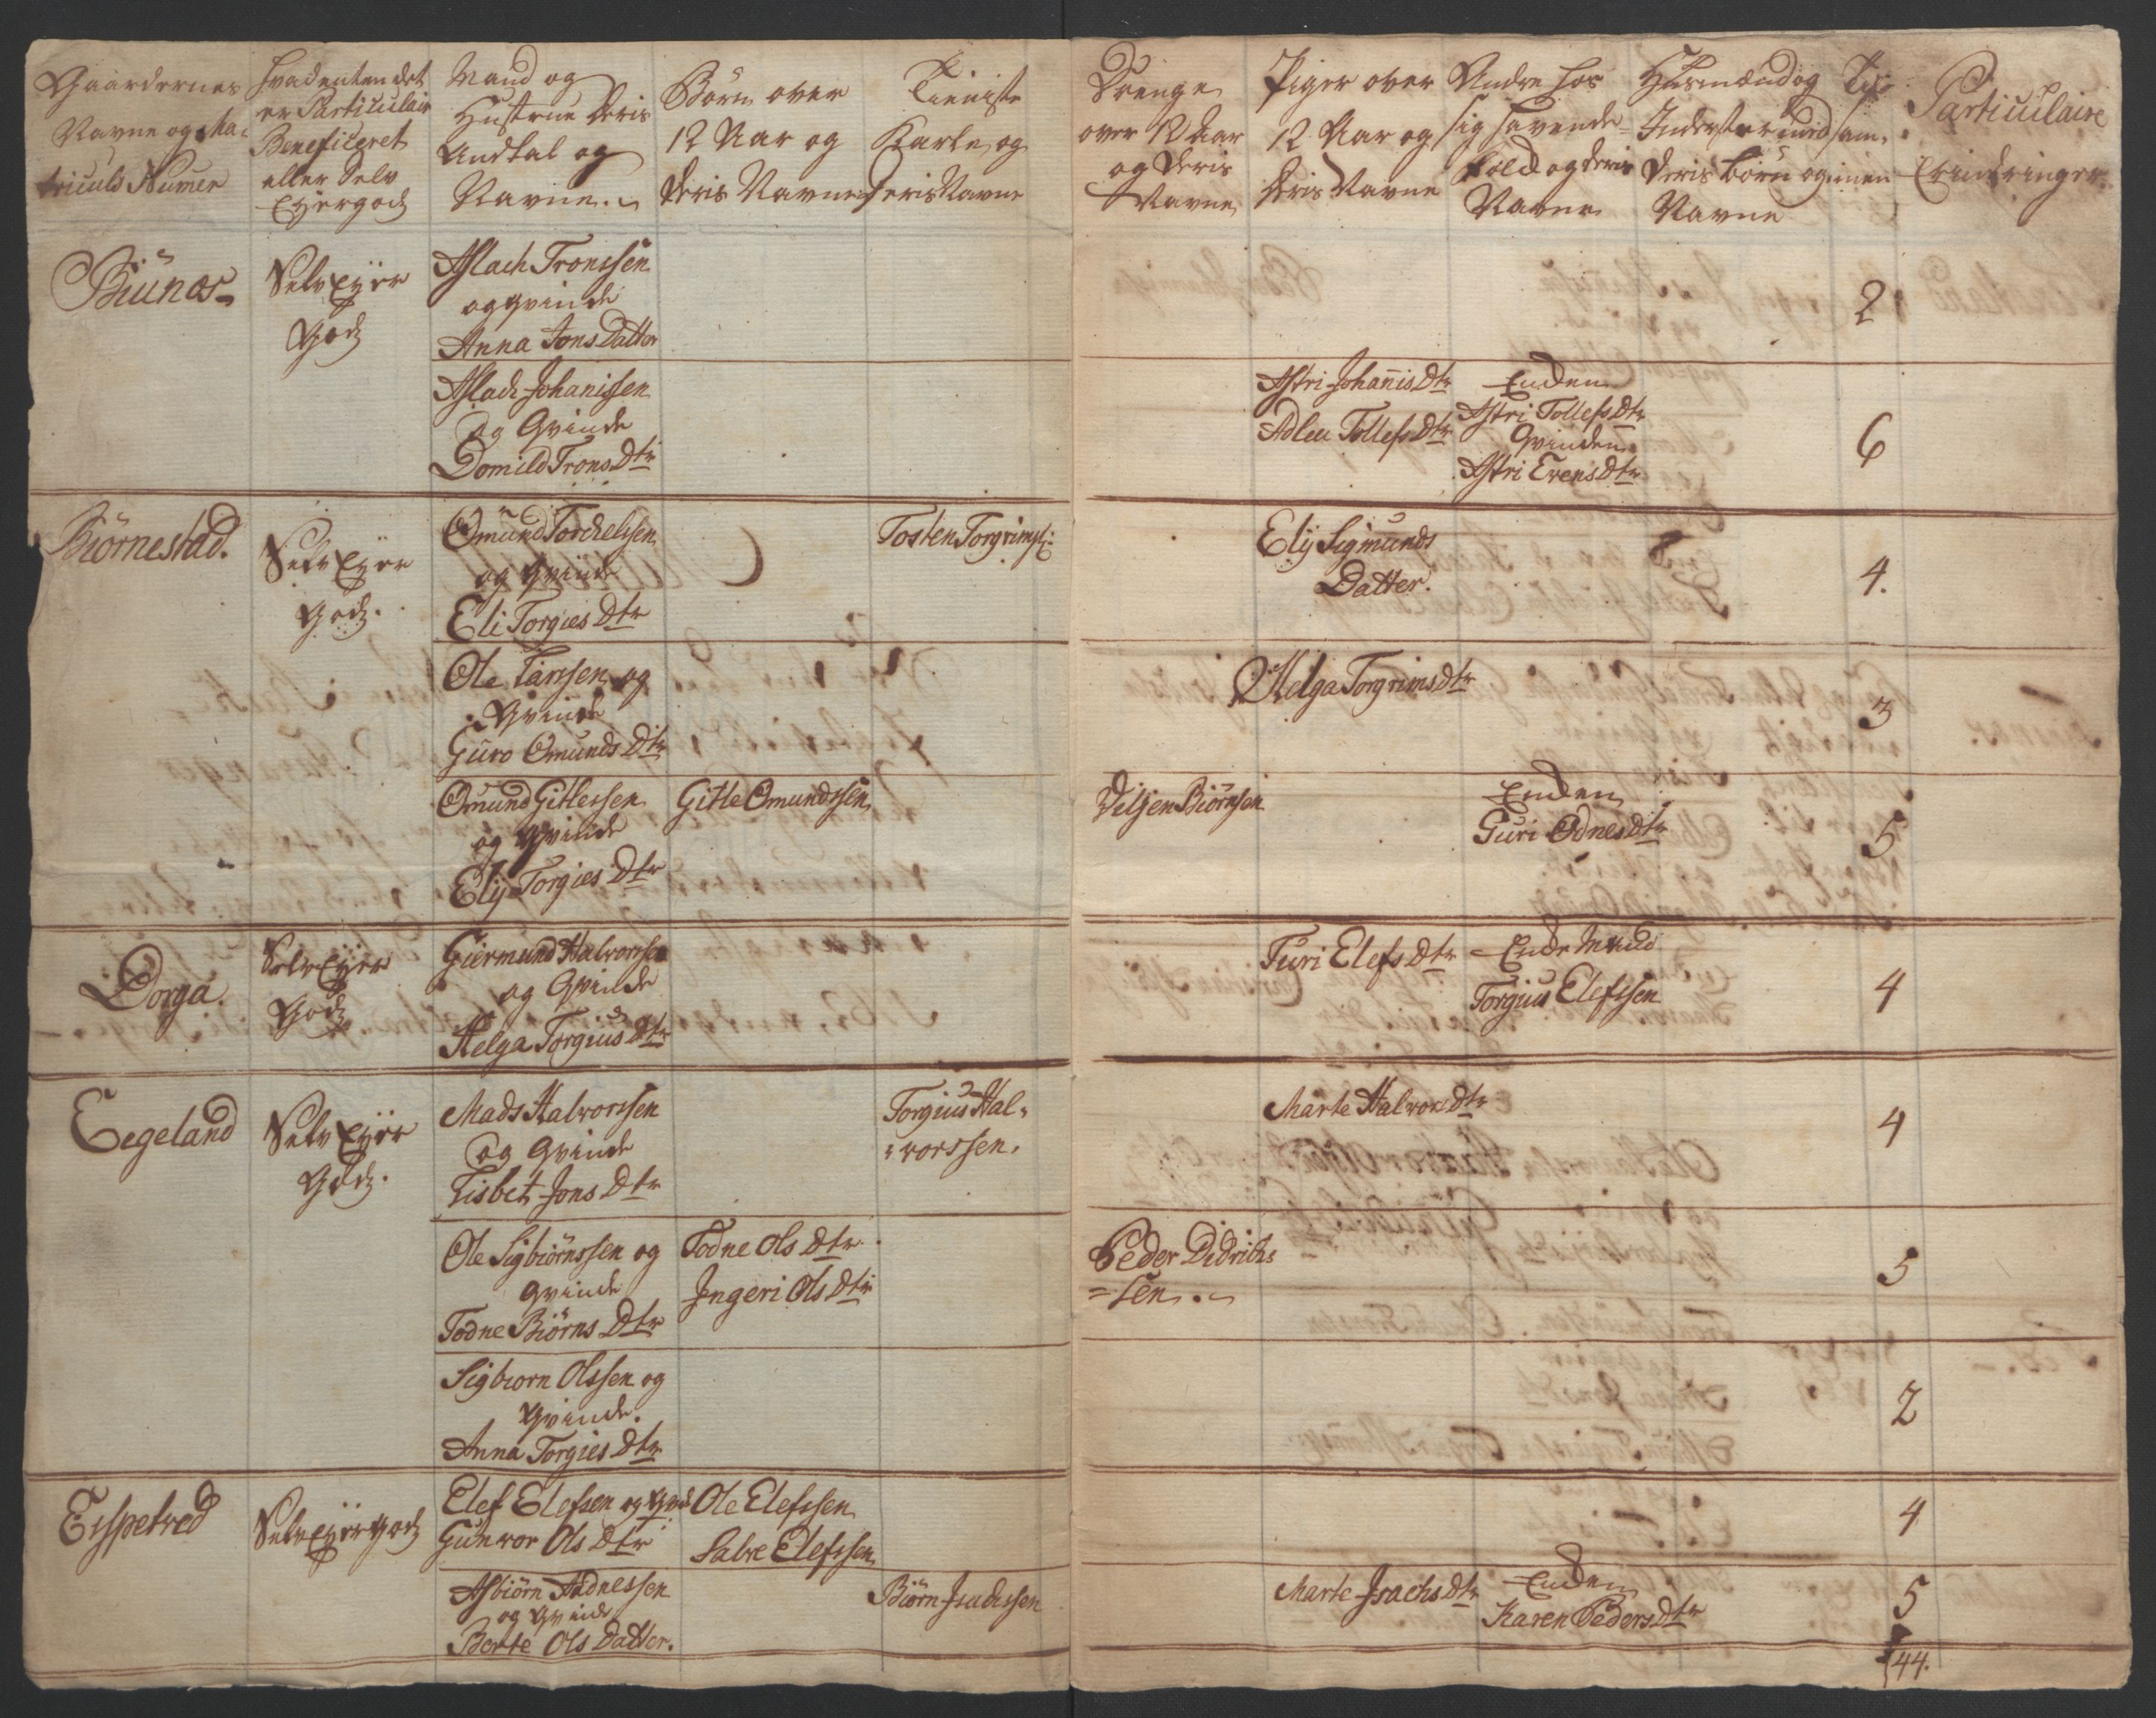 Gaardernes
Navne og Ma-
triculs Numer
Hvadenten det
er Particulair
Beneficeret
eller Selv
Eyergods
Mand og
Hustrue deris
Andtal og
Navne.
Börn over
12 Aar og
deris Navne
Tieniste
Karle og
deris Navne
Drenge
over 12 Aar
og deris
Navne
Piger over
12 Aar og
deris Navne
Andre hos
sig havende
fold og deris
Navne
Husmænd og
Inderster med
deris börn og
Navne
Til-
sam-
men
Particulaire
Erindringer
Biünes
Selv Eyer
Gods
Aslach Tronssen
og qvinde
Anna Jons Datter
2
Aslach Johanissen
og Qvinde
Domild Trons Dtr
Astri Johanis Dtr
Adleu Tollefs Dtr
Enden
Astri Tollefs Dtr
Qvinden
Astri Evens Dtr
6
Biörnestad.
Selv Eyer
Gods.
Omund Torchelssen
og Qvinde
Eli Torgies Dtr
Tosten Torgrims:
Elij Sigmunds
Datter.
4.
Ole Larssen og
Qvinde
Guro Omunds Dtr
Helga Torgrims dtr
3
Omund Gitlessen
og Qvinde
Elij Torgies Dtr
Gitle Omundssen
Veljen Biörnsen
Enden
Guri Odnes Dtr
5
Dorga.
Selv Eyer
Gods
Giermund Halvorssen
og Qvinde
Helga Torgius Dtr
Turi Elefs Dtr
Enke Mand
Torgius Elefssen
4
Eegeland
Selv Eyer
Gods.
Mads Halvorssen
og Qvinde
Lisbet Jons Dtr
Torgius Hal-
vorssen.
Marte Halvors Dtr
4
Ole Sigbiörnssen og
Qvinde
Todne Biörns Dtr
Todne Ols Dtr
Ingeri Ols Dtr
Peder Didrichs
=sen.
5
Sigbiorn Olssen og
Qvinde.
Anna Torgies Dtr
2
Espetved
Selv Eyer Gods
Elef Elefsen og Qvi
Gunvor Ols Dtr
Ole Elefssen
Salve Elefssen
4
Asbiörn Adnessen
og Qvinde
Berte Ols Datter.
Biörn Isachssen
Marte Isachs Dtr
Enden
Karen Peders Dtr
5
44.